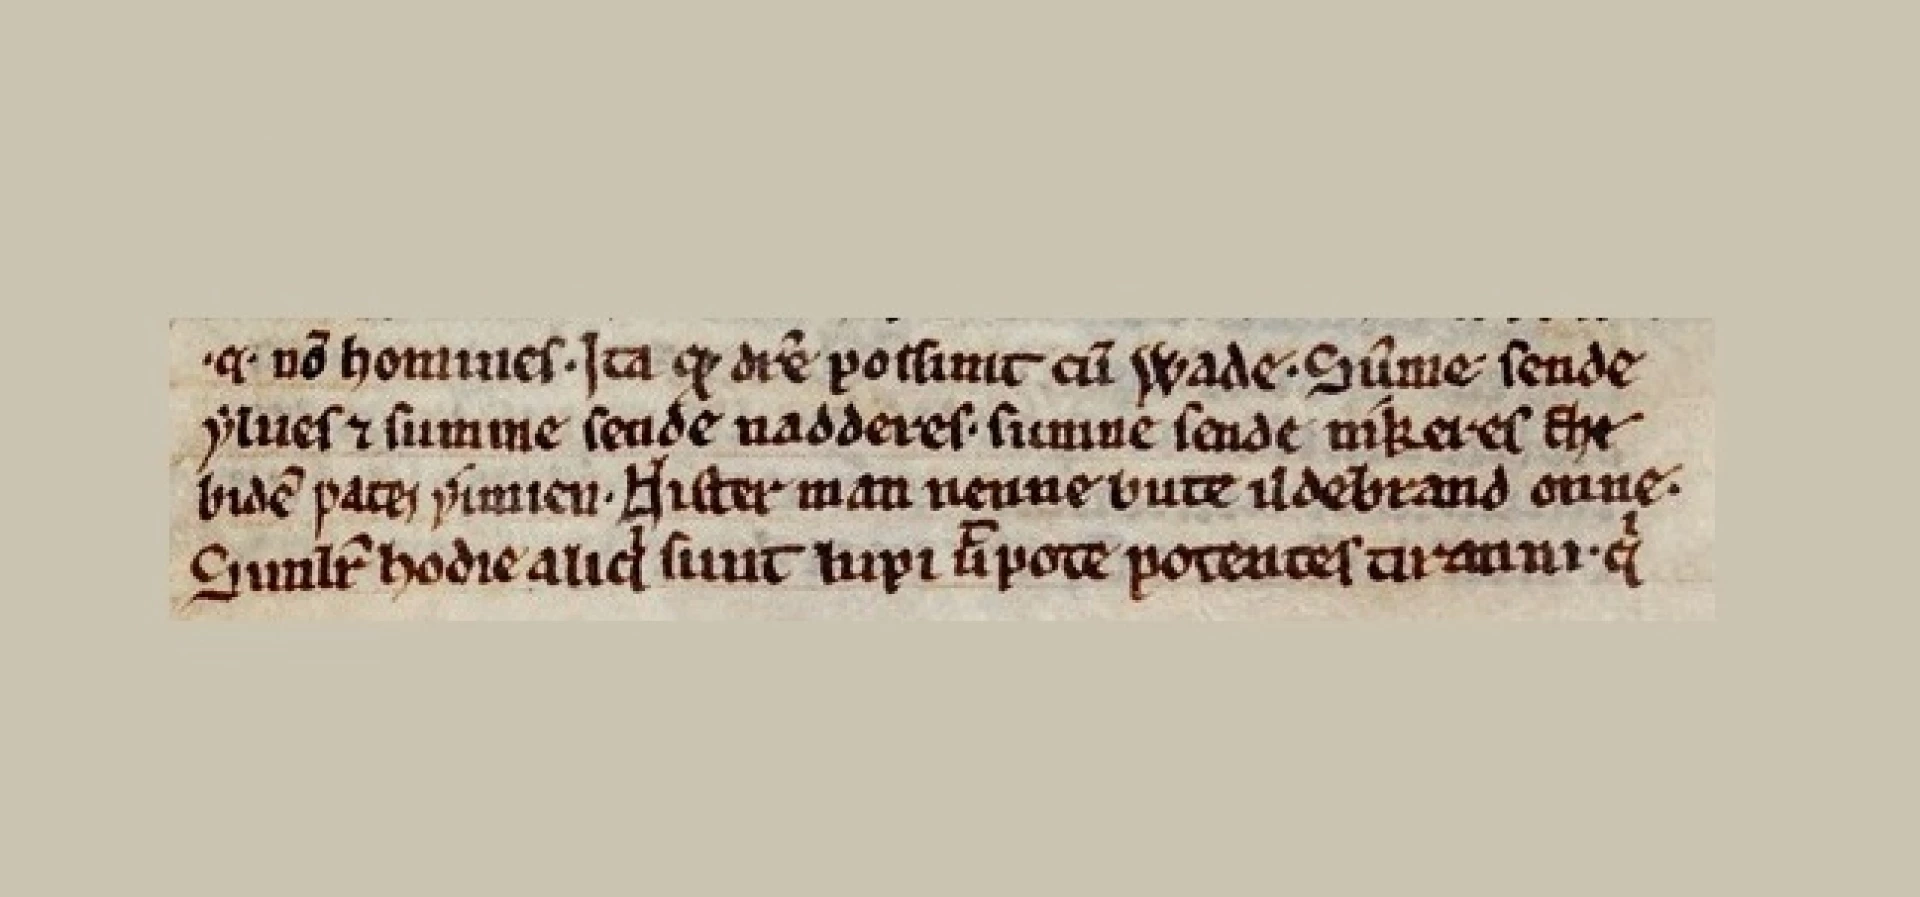 .q. nō homines. Ita qđ dicē possunt cū Wade. Sūme sende
ẏlues ⁊ summe sende nadderes. sumne sende nikeres the
bidē pates ẏinnien. Nister man nenne bute ildebrand onne.
Simlr̄ hodie aliqͥ sunt lupi utpote potentes tiranni. qͥ